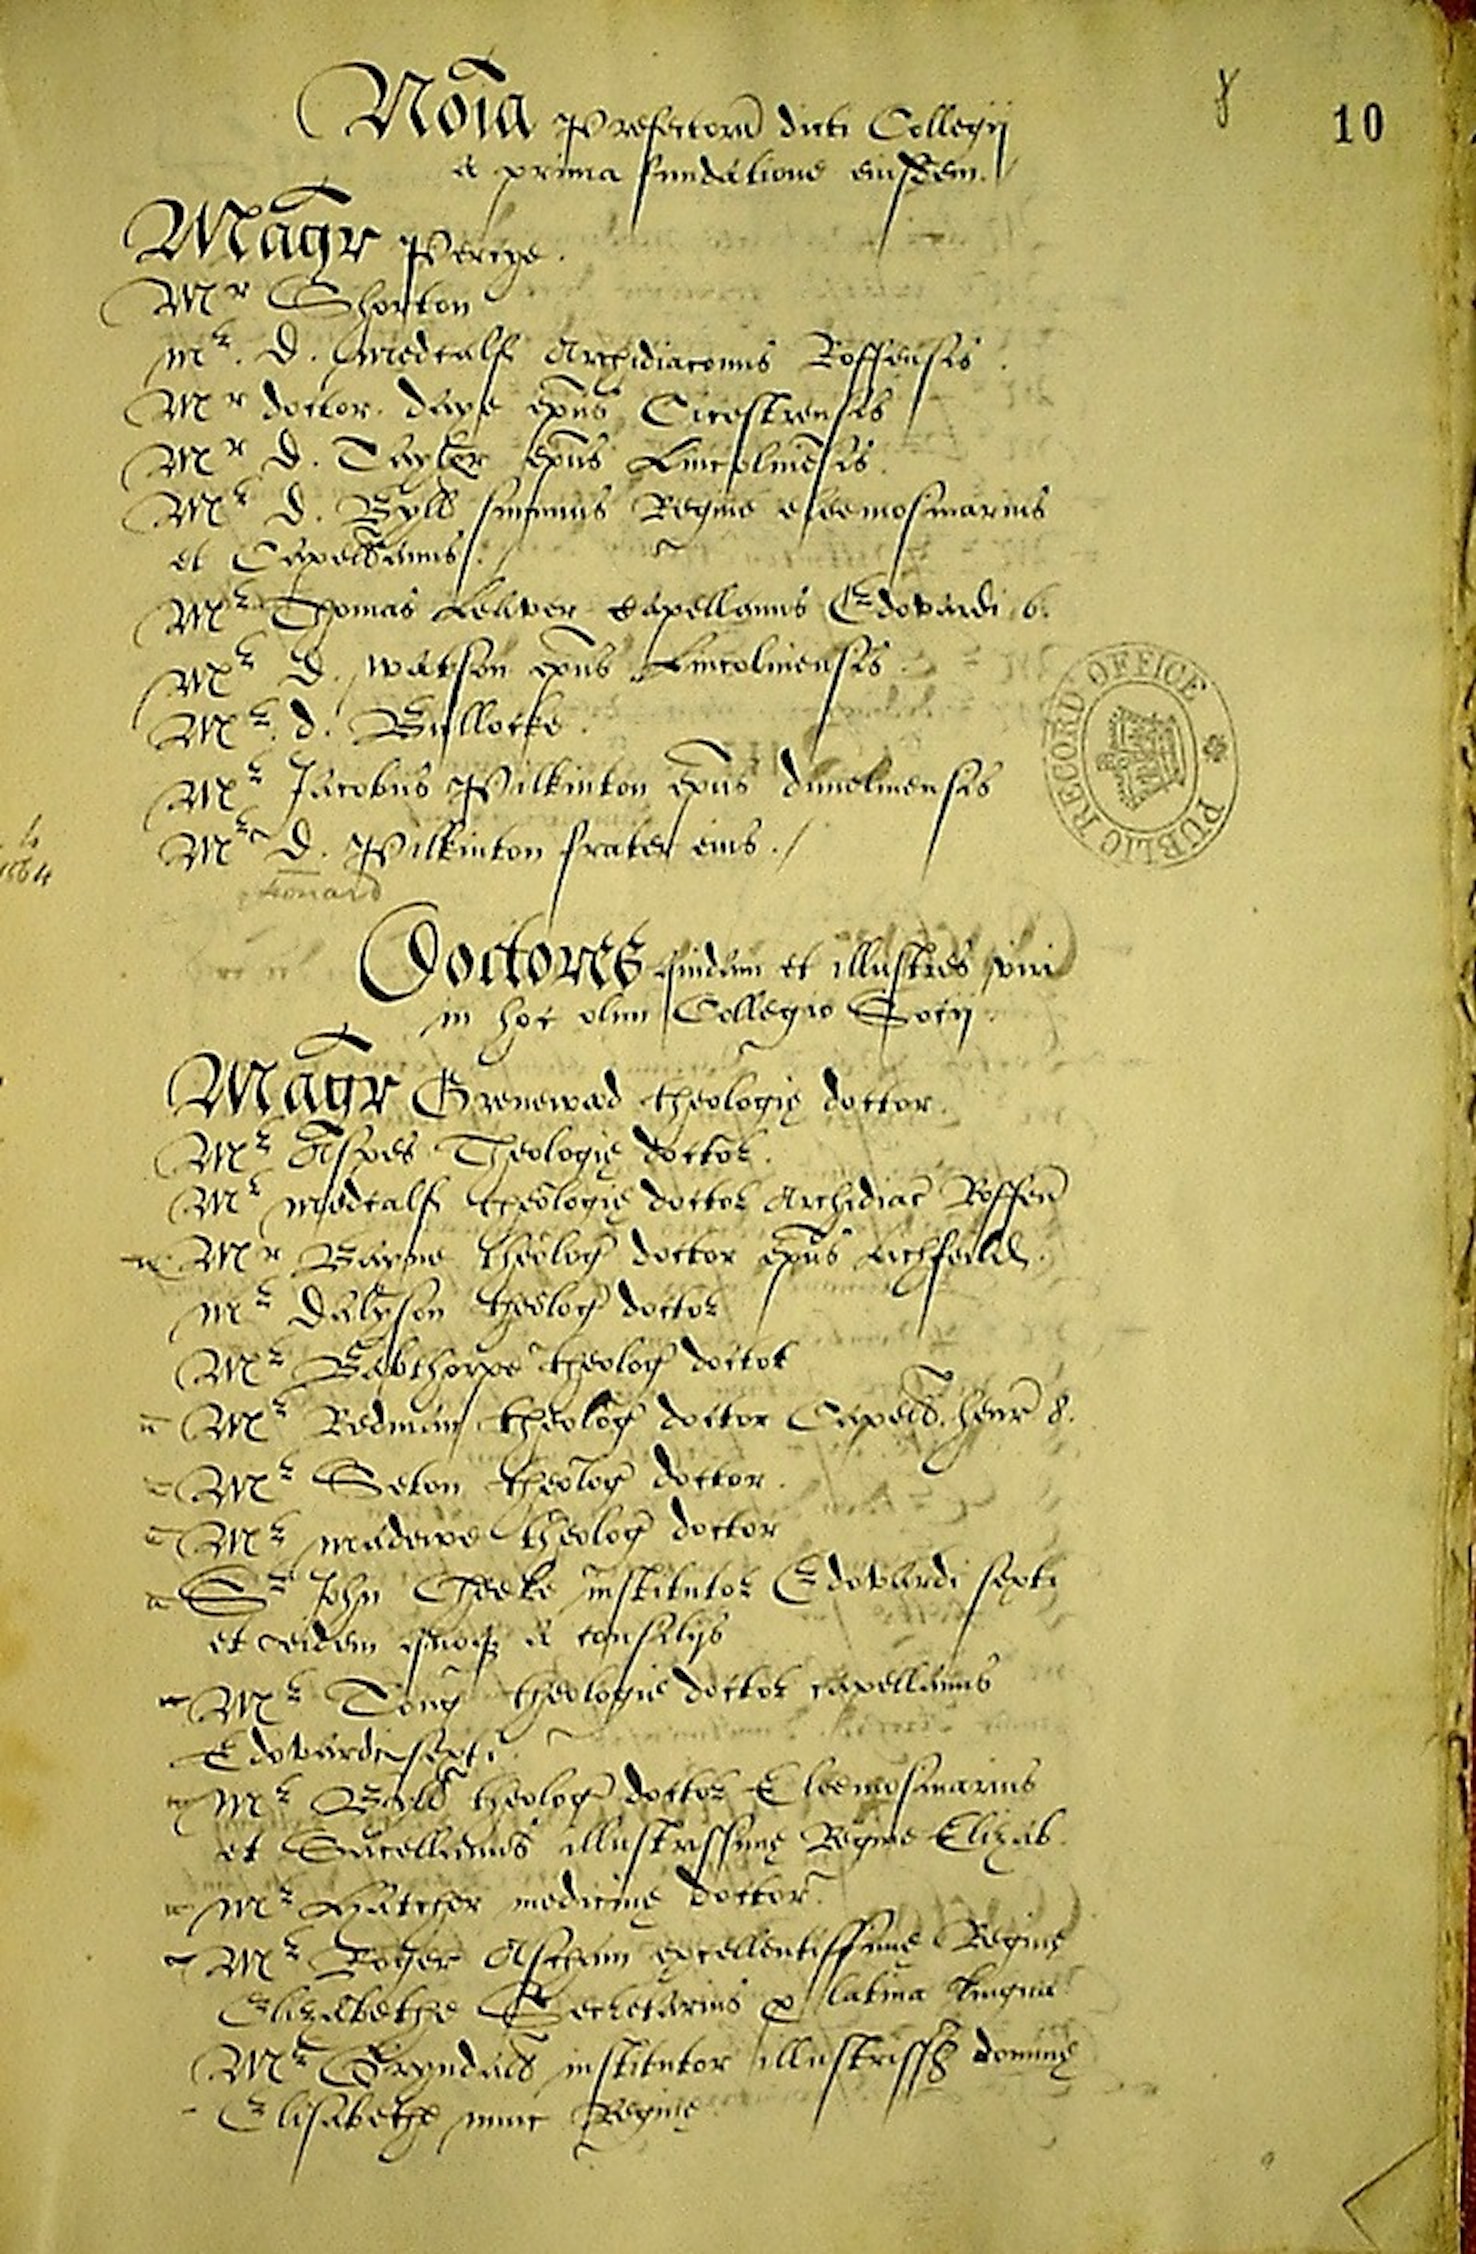 10
Noia Prefectorum dicti Collegij
a prima fundatione eiusdem.
Magr Percye.
Mr Shorton
Mr. D. Medcalf Archidiaconus Roffensis.
Mr doctor. daye epus Cicestrensis
Mr D. Tayler epus Lincolniesis.
Mr D. Byll summus Regine eleemosinarius
et Capellanus.
Mr Thomas Leaver capellanus Edovardi 6.
Mr D. Watson epus Lincolniensis.
Mr. d. Bullocke.
Mr Jacobus Pilkinton epus dunelmensis
Mr D. Pilkinton frater eius.
Leonard
1564
PUBLIC RECORD OFFICE
Doctores quidam et illustres viri
in hoc olim Collegio Socij.
Magr Grenewod theologie doctor.
Mr Asspes Theologie doctor.
Mr medcalf theologie doctor Archidiac Roffen
Mr Bayne theolog doctor epus Lichfeild.
Mr Dalyson theolog doctor
Mr Babthorpe theolog doctor
Mr Redman theolog doctor Capell. henr 8.
Mr Seton theolog doctor.
Mr madewe theolog doctor
Sr John Cheeke institutor Edovardi sexti
et eidem quoque a consilijs
Mr Tong theologie doctor capellanus
Edovardi sexti.
Mr Byll theolog doctor Eleemosinarius
et Sacellanus illustrissime Regine Elizab.
Mr Hatcher medicine doctor.
Mr Roger Ascham excellentissime Regine
Elizabethe Secretarius pro latina lingua
Mr Gryndall institutor illustriss domine
Elisabethe nunc Regine